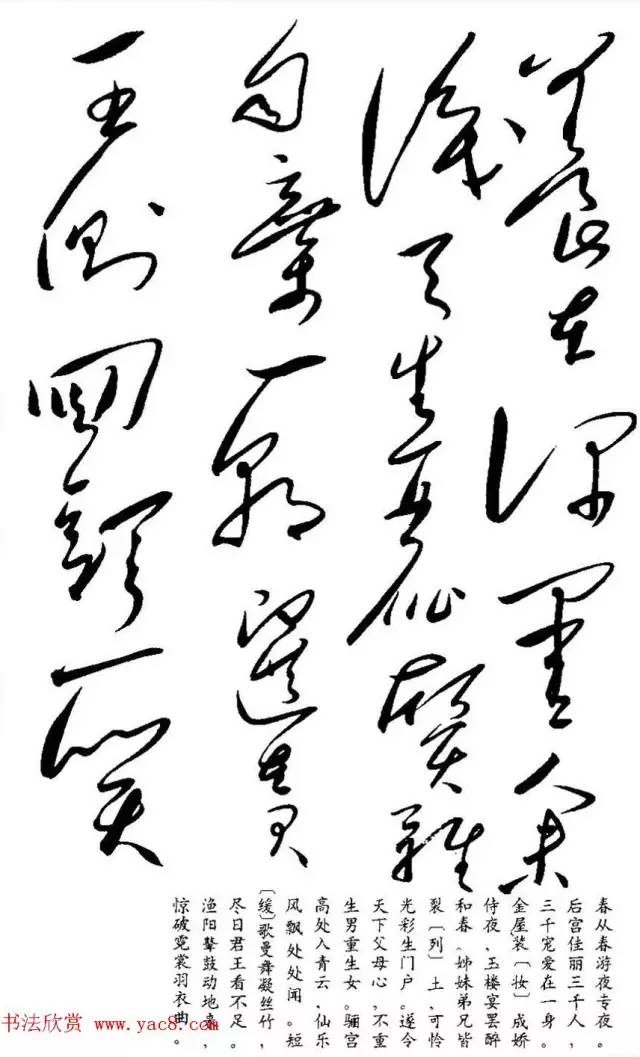 養在深閨人未
識天生麗質難
自棄一朝選在君
王側回頭一笑
春从春游夜专夜。
后宫佳丽三千人，
三千宠爱在一身。
金屋装〔妆〕成娇
侍夜，玉楼宴罢醉
和春。姊妹弟兄皆
裂〔列〕土，可怜
光彩生门户。遂令
天下父母心，不重
生男重生女。骊宫
高处入青云，仙乐
风飘处处闻。短
〔缓〕歌曼舞凝丝竹，
尽日君王看不足。
渔阳鼙鼓动地来，
惊破霓裳羽衣曲。
书法欣赏 www.yac8.com